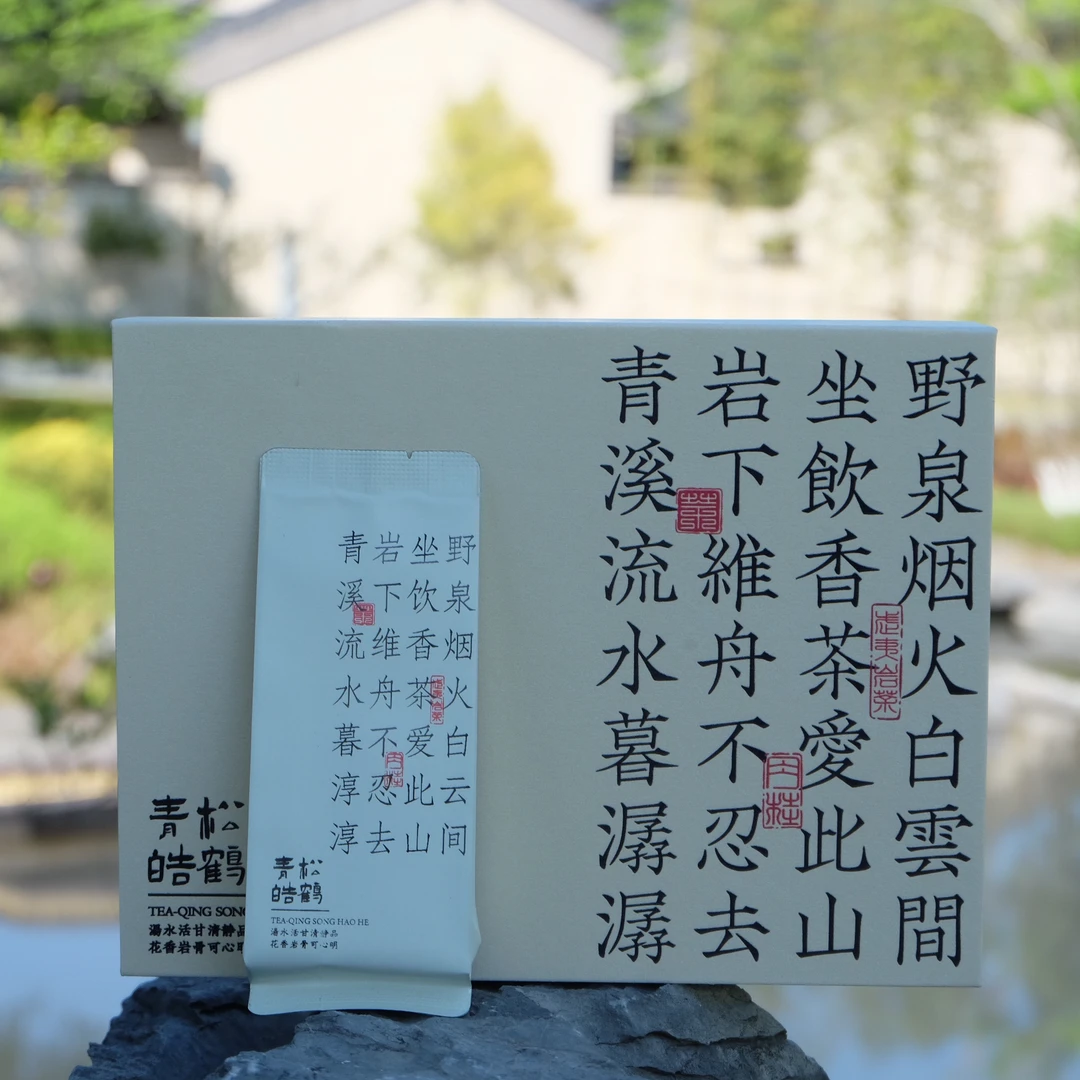 野泉烟火白雲間
坐飲香茶愛此山
岩下維舟不忍去
青溪流水暮潺潺
武夷岩茶
肉桂
青松
皓鶴
TEA-QING SONG
湯水活甘清静品
花香岩骨可心明
野泉烟火白云间
坐饮香茶爱此山
岩下维舟不忍去
青溪流水暮淳淳
武夷岩茶
肉桂
青松
皓鶴
TEA-QING SONG HAO HE
湯水活甘清静品
花香岩骨可心明